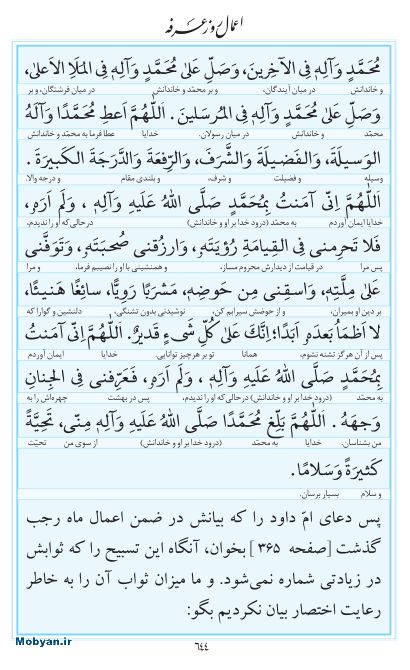 اعمال روز عرفه
مُحَمَّدٍ وَآلِهِ فِی الْآخِرِینَ، وَصَلِّ عَلیٰ مُحَمَّدٍ وَآلِهِ فِی الْمَلَاِ الْاَعلیٰ،
و خاندانش در میان آیندگان، و بر محمّد و خاندانش در میان فرشتگان، و بر
وَصَلِّ عَلیٰ مُحَمَّدٍ وَآلِهِ فِی الْمُرسَلینَ. اَللّٰهُمَّ اَعطِ مُحَمَّدًا وَآلَهُ
محمّد و خاندانش در میان رسولان. خدایا عطا فرما به محمّد و خاندانش
الوَسیلَةَ، وَالفَضیلَةَ وَالشَّرَفَ، وَالرِّفعَةَ وَالدَّرَجَةَ الکَبیرَةَ.
وسیله و فضیلت و شرف، و بلندی مقام و درجه والا.
اَللّٰهُمَّ اِنّی آمَنتُ بِمُحَمَّدٍ صَلَّی اللّٰهُ عَلَیهِ وَآلِهِ، وَلَم اَرَهُ،
خدایا ایمان آوردم به محمّد (درود خدا بر او و خاندانش) درحالی که او را ندیدم،
فَلا تَحرِمنی فِی القِیامَةِ رُؤیَتَهُ، وَارزُقنی صُحبَتَهُ، وَتَوَفَّنی
پس مرا در قیامت از دیدارش محروم مساز، و همنشینی با او را نصیبم فرما، و مرا
عَلیٰ مِلَّتِهِ، وَاسقِنی مِن حَوضِهِ، مَشرَبًا رَوِیًّا، سائِغًا هَنیئًا،
بر دین او بمیران، و از حوضش سیرابم کن، نوشیدنی بدون تشنگی، دلنشین و گوارا که
لا اَظمَاُ بَعدَهُ اَبَدًا؛ اِنَّکَ عَلیٰ کُلِّ شَیءٍ قَدیرٌ. اَللّٰهُمَّ اِنّی آمَنتُ
پس از آن هرگز تشنه نشوم، همانا تو بر هر چیز توانایی. خدایا ایمان آوردم
بِمُحَمَّدٍ صَلَّی اللّٰهُ عَلَیهِ وَآلِهِ، وَلَم اَرَهُ، فَعَرِّفنی فِی الجِنانِ
به محمّد (درود خدا بر او و خاندانش) درحالی که او را ندیدم، پس در بهشت چهره‌اش را به
وَجهَهُ. اَللّٰهُمَّ بَلِّغ مُحَمَّدًا صَلَّی اللّٰهُ عَلَیهِ وَآلِهِ مِنّی، تَحِیَّةً
من بشناسان. خدایا به محمّد (درود خدا بر او و خاندانش) از سوی من تحیّت
کَثیرَةً وَسَلامًا.
و سلام بسیار برسان.
پس دعای امّ داود را که بیانش در ضمن اعمال ماه رجب
گذشت [صفحه ۳۶۵] بخوان، آنگاه این تسبیح را که ثوابش
در زیادتی شماره نمی‌شود. و ما میزان ثواب آن را به خاطر
رعایت اختصار بیان نکردیم بگو:
۶۴۴
Mobyan.ir